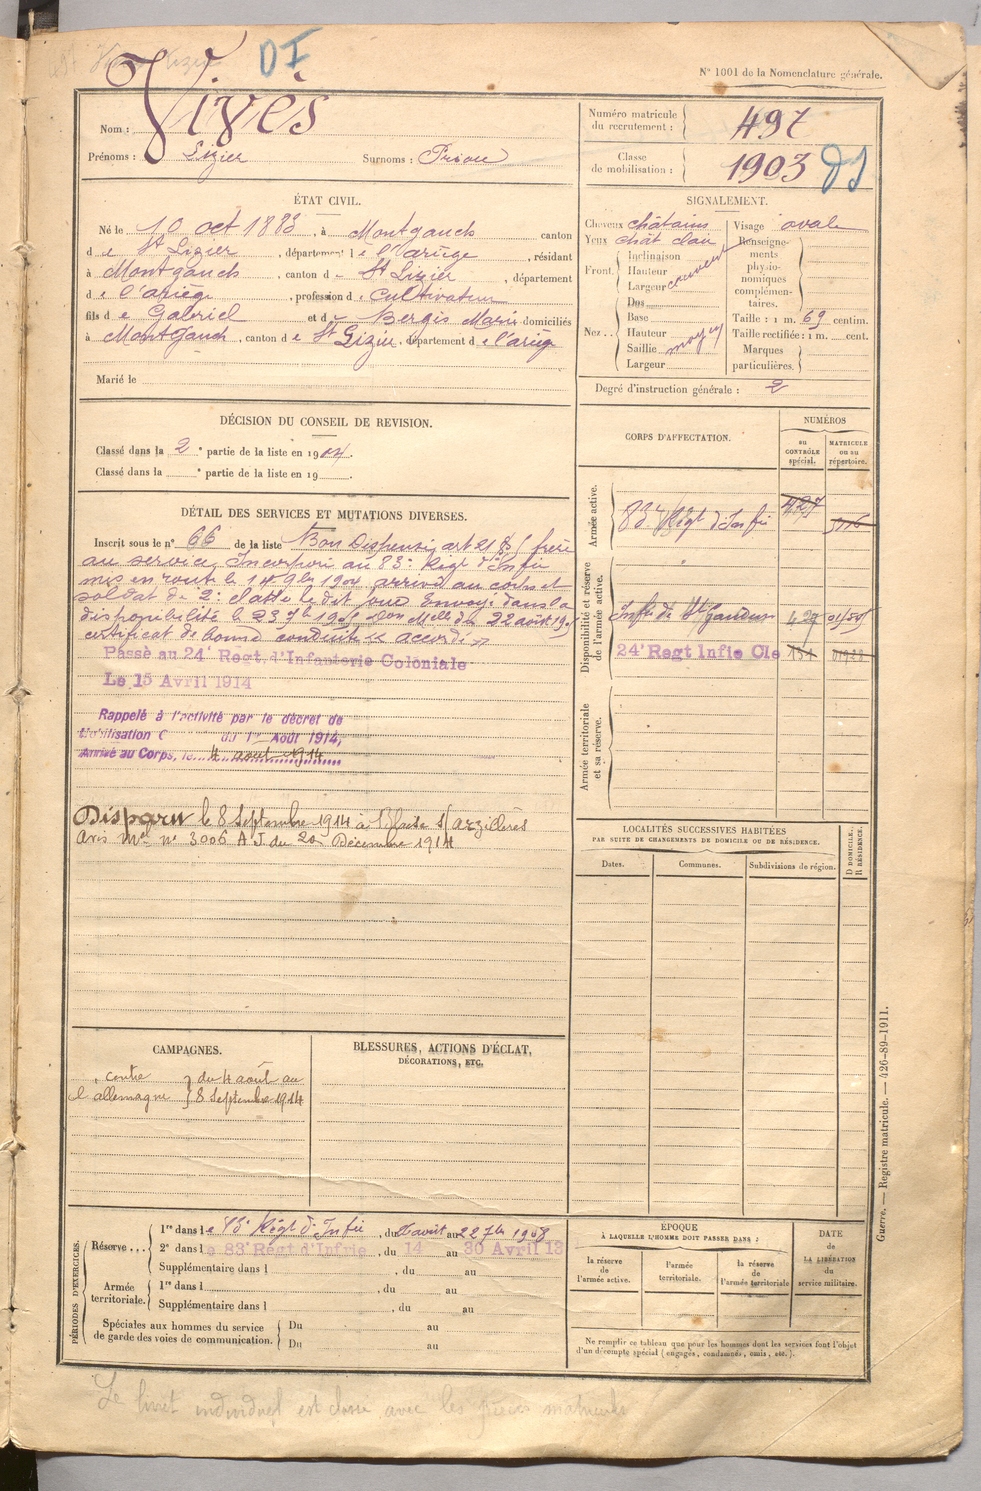 DI
N° 1001 de la Nomenclature générale.
Nom : Vivès
Prénoms : Lizier Surnoms : Priou
Numéro matricule du recrutement : 497
Classe de mobilisation : 1903 DI
ÉTAT CIVIL.
Né le 10 oct 1883, à Montgauch canton
de St Lizier, département de l'ariège, résidant
à Montgauch, canton de St Lizier, département
de l'ariège, profession de Cultivateur
fils de Gabriel et de Bergis Marie domiciliés
à Montgauch, canton de St Lizier, département de l'ariège
Marié le
SIGNALEMENT.
Cheveux châtains Visage ovale
Yeux chât clair Renseignements physionomiques complémentaires.
Front. Inclinaison
Hauteur
Largeur couvert
Nez.. Dos
Base
Hauteur
Saillie moyen
Largeur
Taille : 1 m. 69 centim.
Taille rectifiée : 1 m. cent.
Marques particulières.
Degré d'instruction générale : 2
DÉCISION DU CONSEIL DE REVISION.
Classé dans la 2e partie de la liste en 1904.
Classé dans la e partie de la liste en 19 .
CORPS D'AFFECTATION.
NUMÉROS
au CONTRÔLE spécial.
MATRICULE ou au répertoire.
Armée active.
83e Régt d'Infie 427
Disponibilité et réserve de l'armée active.
Infie de St Gaudens 427
24e Regt Infie Cle 131
Armée territoriale et sa réserve.
DÉTAIL DES SERVICES ET MUTATIONS DIVERSES.
Inscrit sous le n° 66 de la liste Bon Dispensé art 21 § frère
au service, Incorporé au 83e Régt d'Infie
mis en route le 14 9bre 1904 arrivé au corps et
soldat de 2e classe le dit jour Envoyé dans la
disponibilité le 23 7bre
certificat de bonne conduite "accordé"
Passé au 24e Regt d'Infanterie Coloniale
Le 15 Avril 1914
Rappelé à l'activité par le décret de
Mobilisation G du 1er Août 1914,
Arrivé au Corps, le 4 aout 1914
Disparu le 8 Septembre 1914 à Blaise s/ arzillères
Avis Mel n° 3006 A J. du 20 Décembre 1914
LOCALITÉS SUCCESSIVES HABITÉES
PAR SUITE DE CHANGEMENTS DE DOMICILE OU DE RÉSIDENCE.
Dates. Communes. Subdivisions de région. D DOMICILE. R RÉSIDENCE.
CAMPAGNES.
contre l'allemagne } du 4 août au 8 Septembre 1914
BLESSURES, ACTIONS D'ÉCLAT,
DÉCORATIONS, ETC.
PÉRIODES D'EXERCICES.
Réserve... 1re dans le 83e Régt d'Infie, du août au 22 7bre 1908
2e dans le 83e Régt d'Infrie, du 14 au 30 Avril 13
Supplémentaire dans l , du au
Armée territoriale. 1re dans l , du au
Supplémentaire dans l , du au
Spéciales aux hommes du service de garde des voies de communication. Du au
Du au
EPOQUE
À LAQUELLE L'HOMME DOIT PASSER DANS :
la réserve de l'armée active.
l'armée territoriale.
la réserve de l'armée territoriale
DATE de LA LIBÉRATION du service militaire.
Ne remplir ce tableau que pour les hommes dont les services font l'objet
d'un décompte spécial (engagés, condamnés, omis, etc.).
Guerre. — Registre matricule. — 426-89-1911.
Le livret individuel est classé avec les pièces matricules